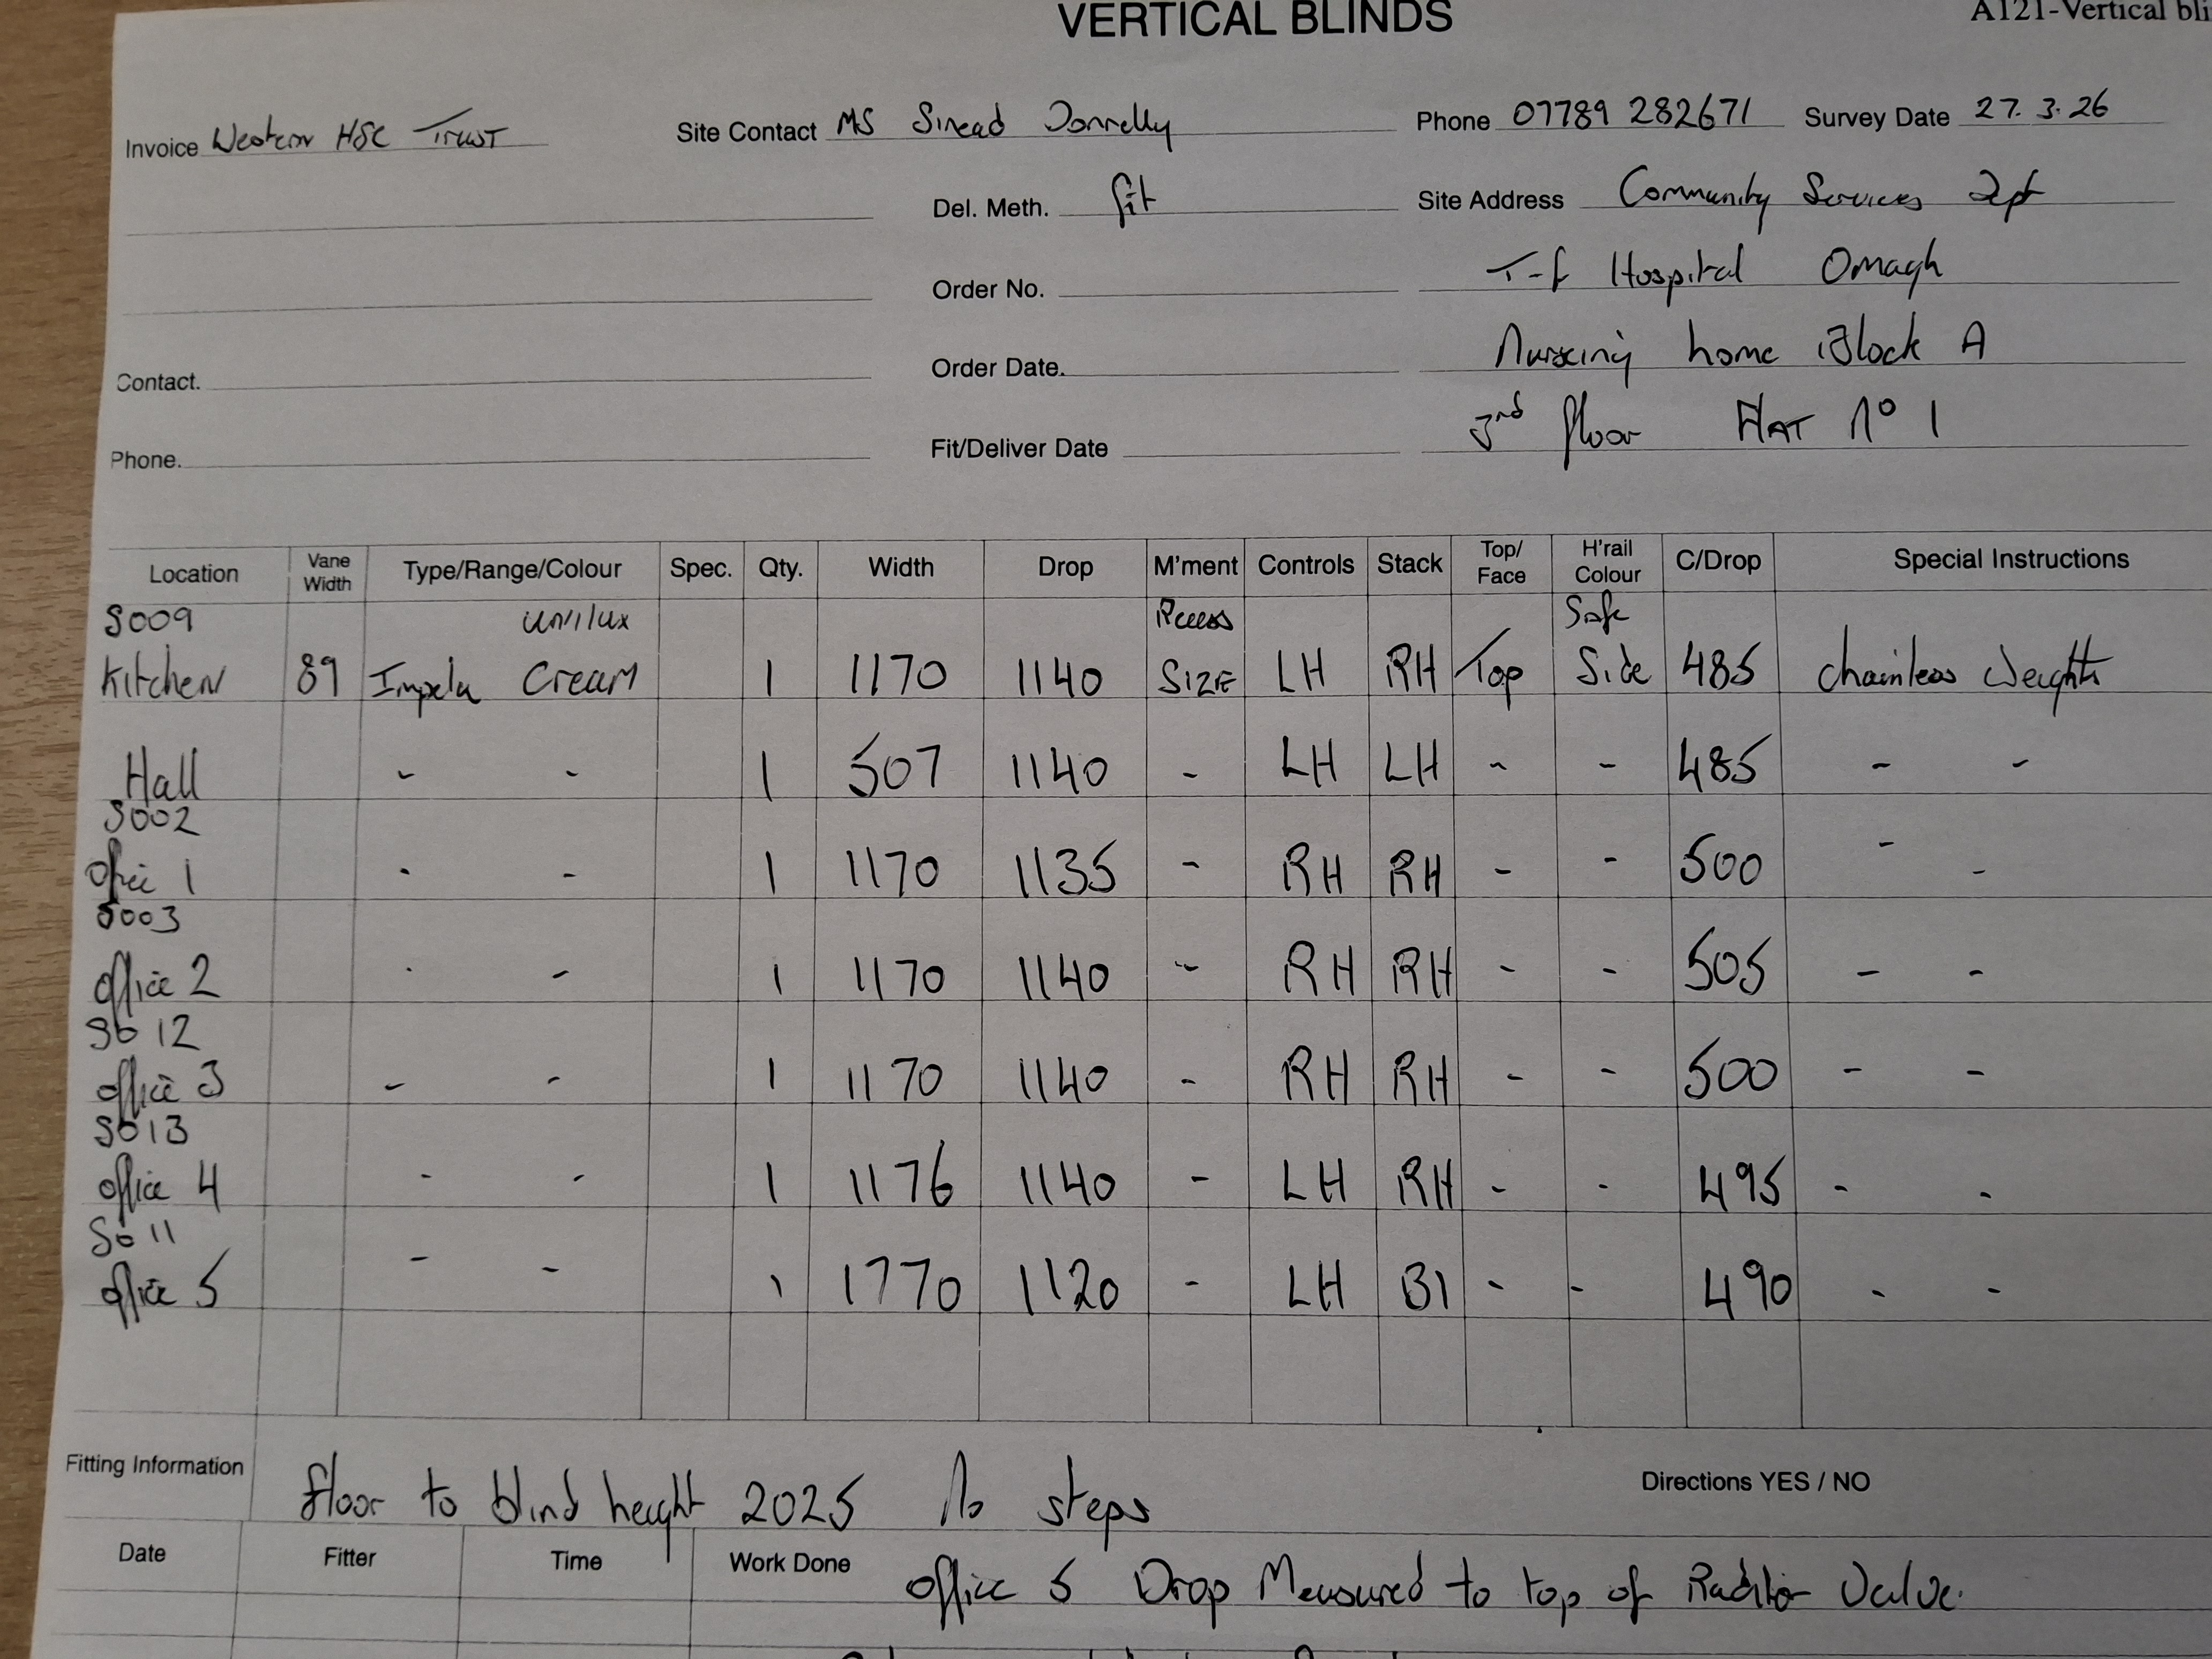 VERTICAL BLINDS
A121-Vertical bli
Invoice Western HSC Trust Site Contact MS Sinead Donnelly Phone 07789 282671 Survey Date 27.3.26
Del. Meth. fit Site Address Community Services Dpt
Order No. T-f Hospital Omagh
Contact. Order Date. Nursing home Block A
Phone. Fit/Deliver Date 3rd floor FLAT No 1
Location Vane Width Type/Range/Colour Spec. Qty. Width Drop M'ment Controls Stack Top/Face H'rail Colour C/Drop Special Instructions
S009 unilux Recess Safe
Kitchen 89 Impela Cream 1 1170 1140 SIZE LH RH Top Side 485 chainless weights
Hall - - 1 507 1140 - LH LH - - 485 - -
S002
Office 1 - - 1 1170 1135 - RH RH - - 500 - -
S003
office 2 - - 1 1170 1140 - RH RH - - 505 - -
S012
office 3 - - 1 1170 1140 - RH RH - - 500 - -
S013
office 4 - - 1 1176 1140 - LH RH - - 495 - -
S011
office 5 - - 1 1770 1120 - LH BI - - 490 - -
Fitting Information floor to blind height 2025 No steps Directions YES / NO
Date Fitter Time Work Done office 5 Drop Measured to top of Raditor Valve.